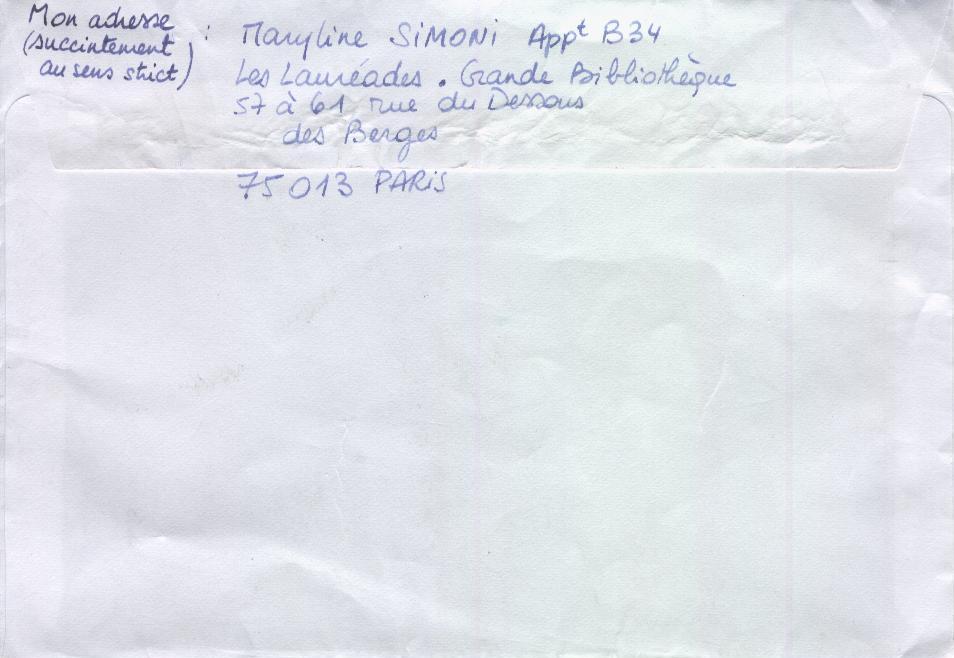 Mon adresse
(succintement
au sens strict) :
Maryline SiMONi Appt B34
Les Lauréades . Grande Bibliothèque
57 à 61 rue du Dessous
des Berges
75013 PARiS